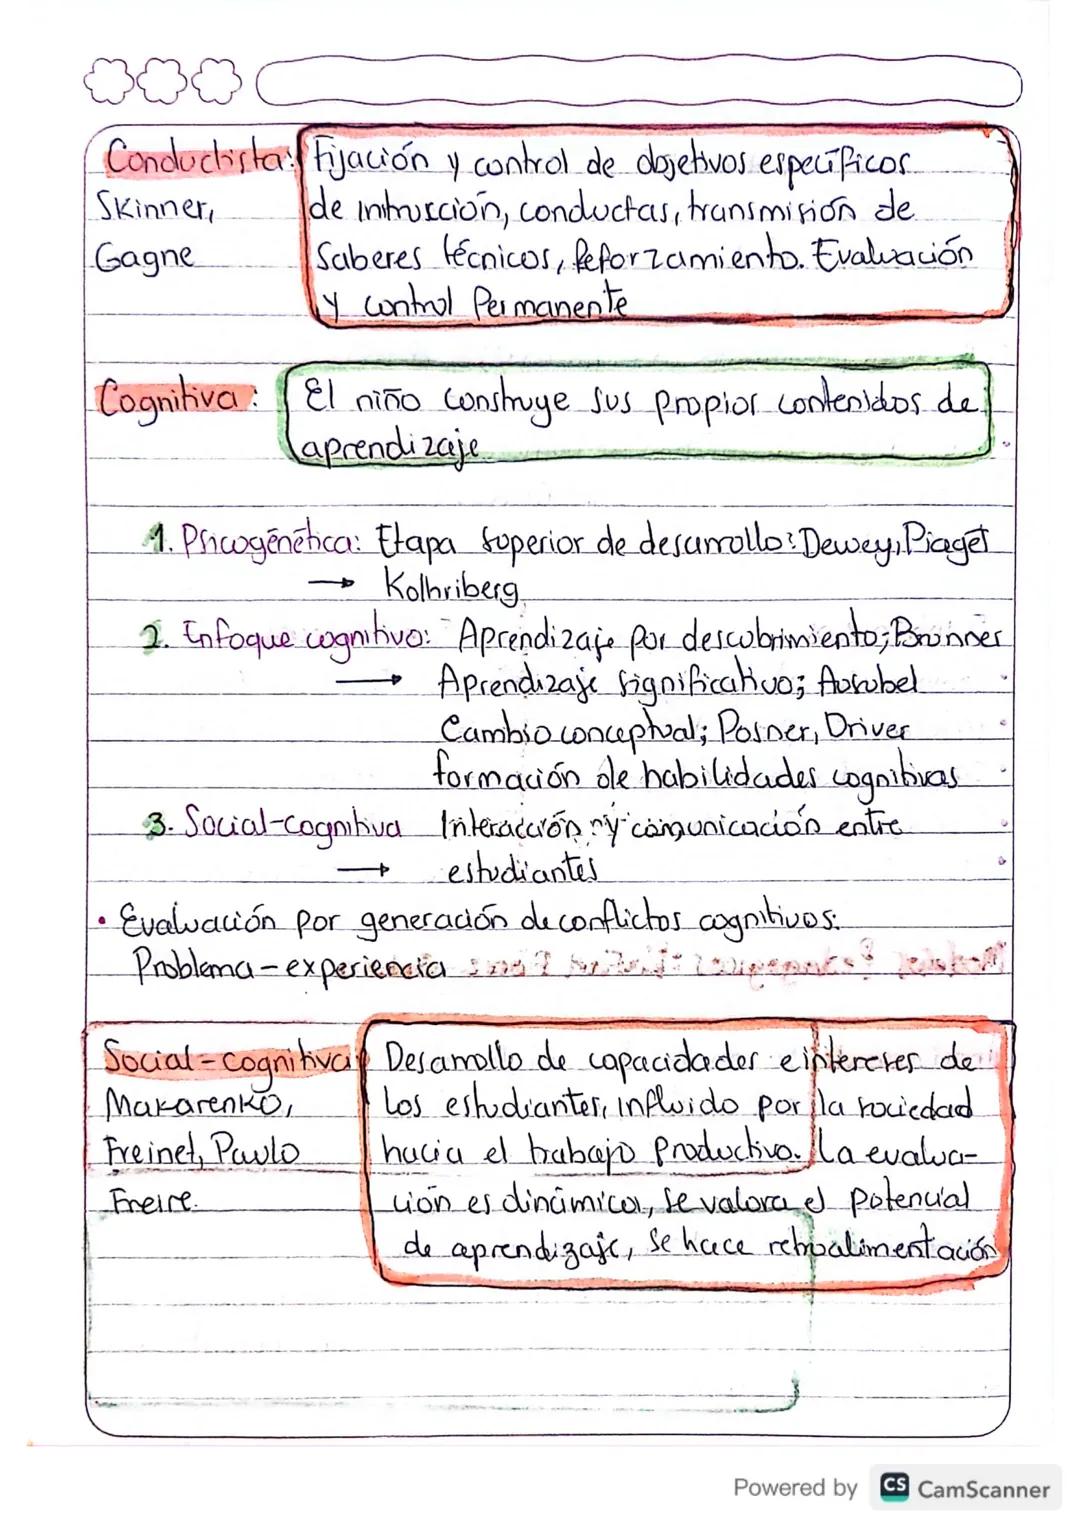 Conductista: Fijación y control de objetivos específicos
Skinner, de intrucción, conductas, transmisión de
Gagne Saberes técnicos, Reforzamiento. Evaluación
y control Permanente
Cognitiva: El niño construye sus propios contenidos de
aprendizaje
1. Psicogénética: Etapa superior de desarrollo: Dewey, Piaget
→ Kolhriberg
2. Enfoque cognitivo: Aprendizaje por descubrimiento; Brunner
→ Aprendizaje significativo; Ausubel
Cambio conceptual; Posner, Driver
formación de habilidades cognitivas
3. Social-cognitiva Interacción y comunicación entre
→ estudiantes
• Evaluación por generación de conflictos cognitivos:
Problema - experiencia
Social-cognitiva Desarrollo de capacidades e intereses de
Makarenko, los estudiantes, influido por la sociedad
Freinet, Paulo hacia el trabajo productivo. La evalua-
Freire. ción es dinámica, se valora el potencial
de aprendizaje, se hace retroalimentación
Powered by CS CamScanner